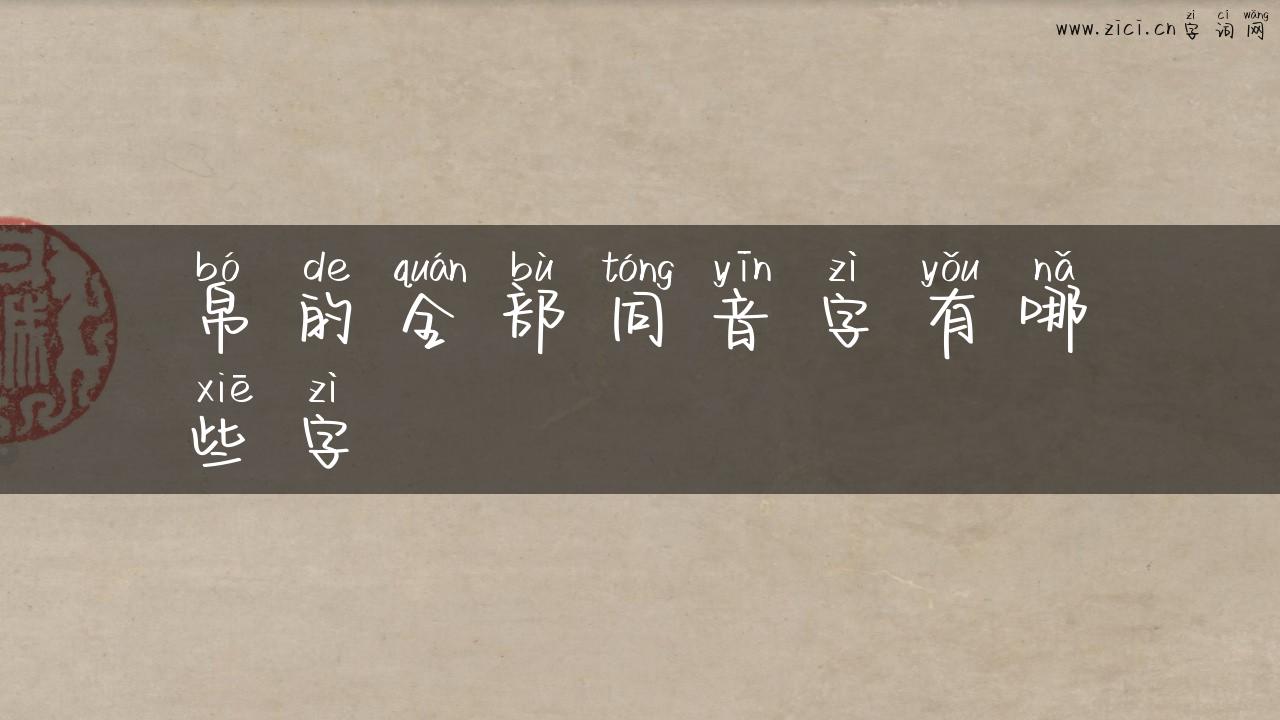 zì cí wǎng
www.zici.cn 字词网
bó de quán bù tóng yīn zì yǒu nǎ
帛的全部同音字有哪
xiē zì
些字